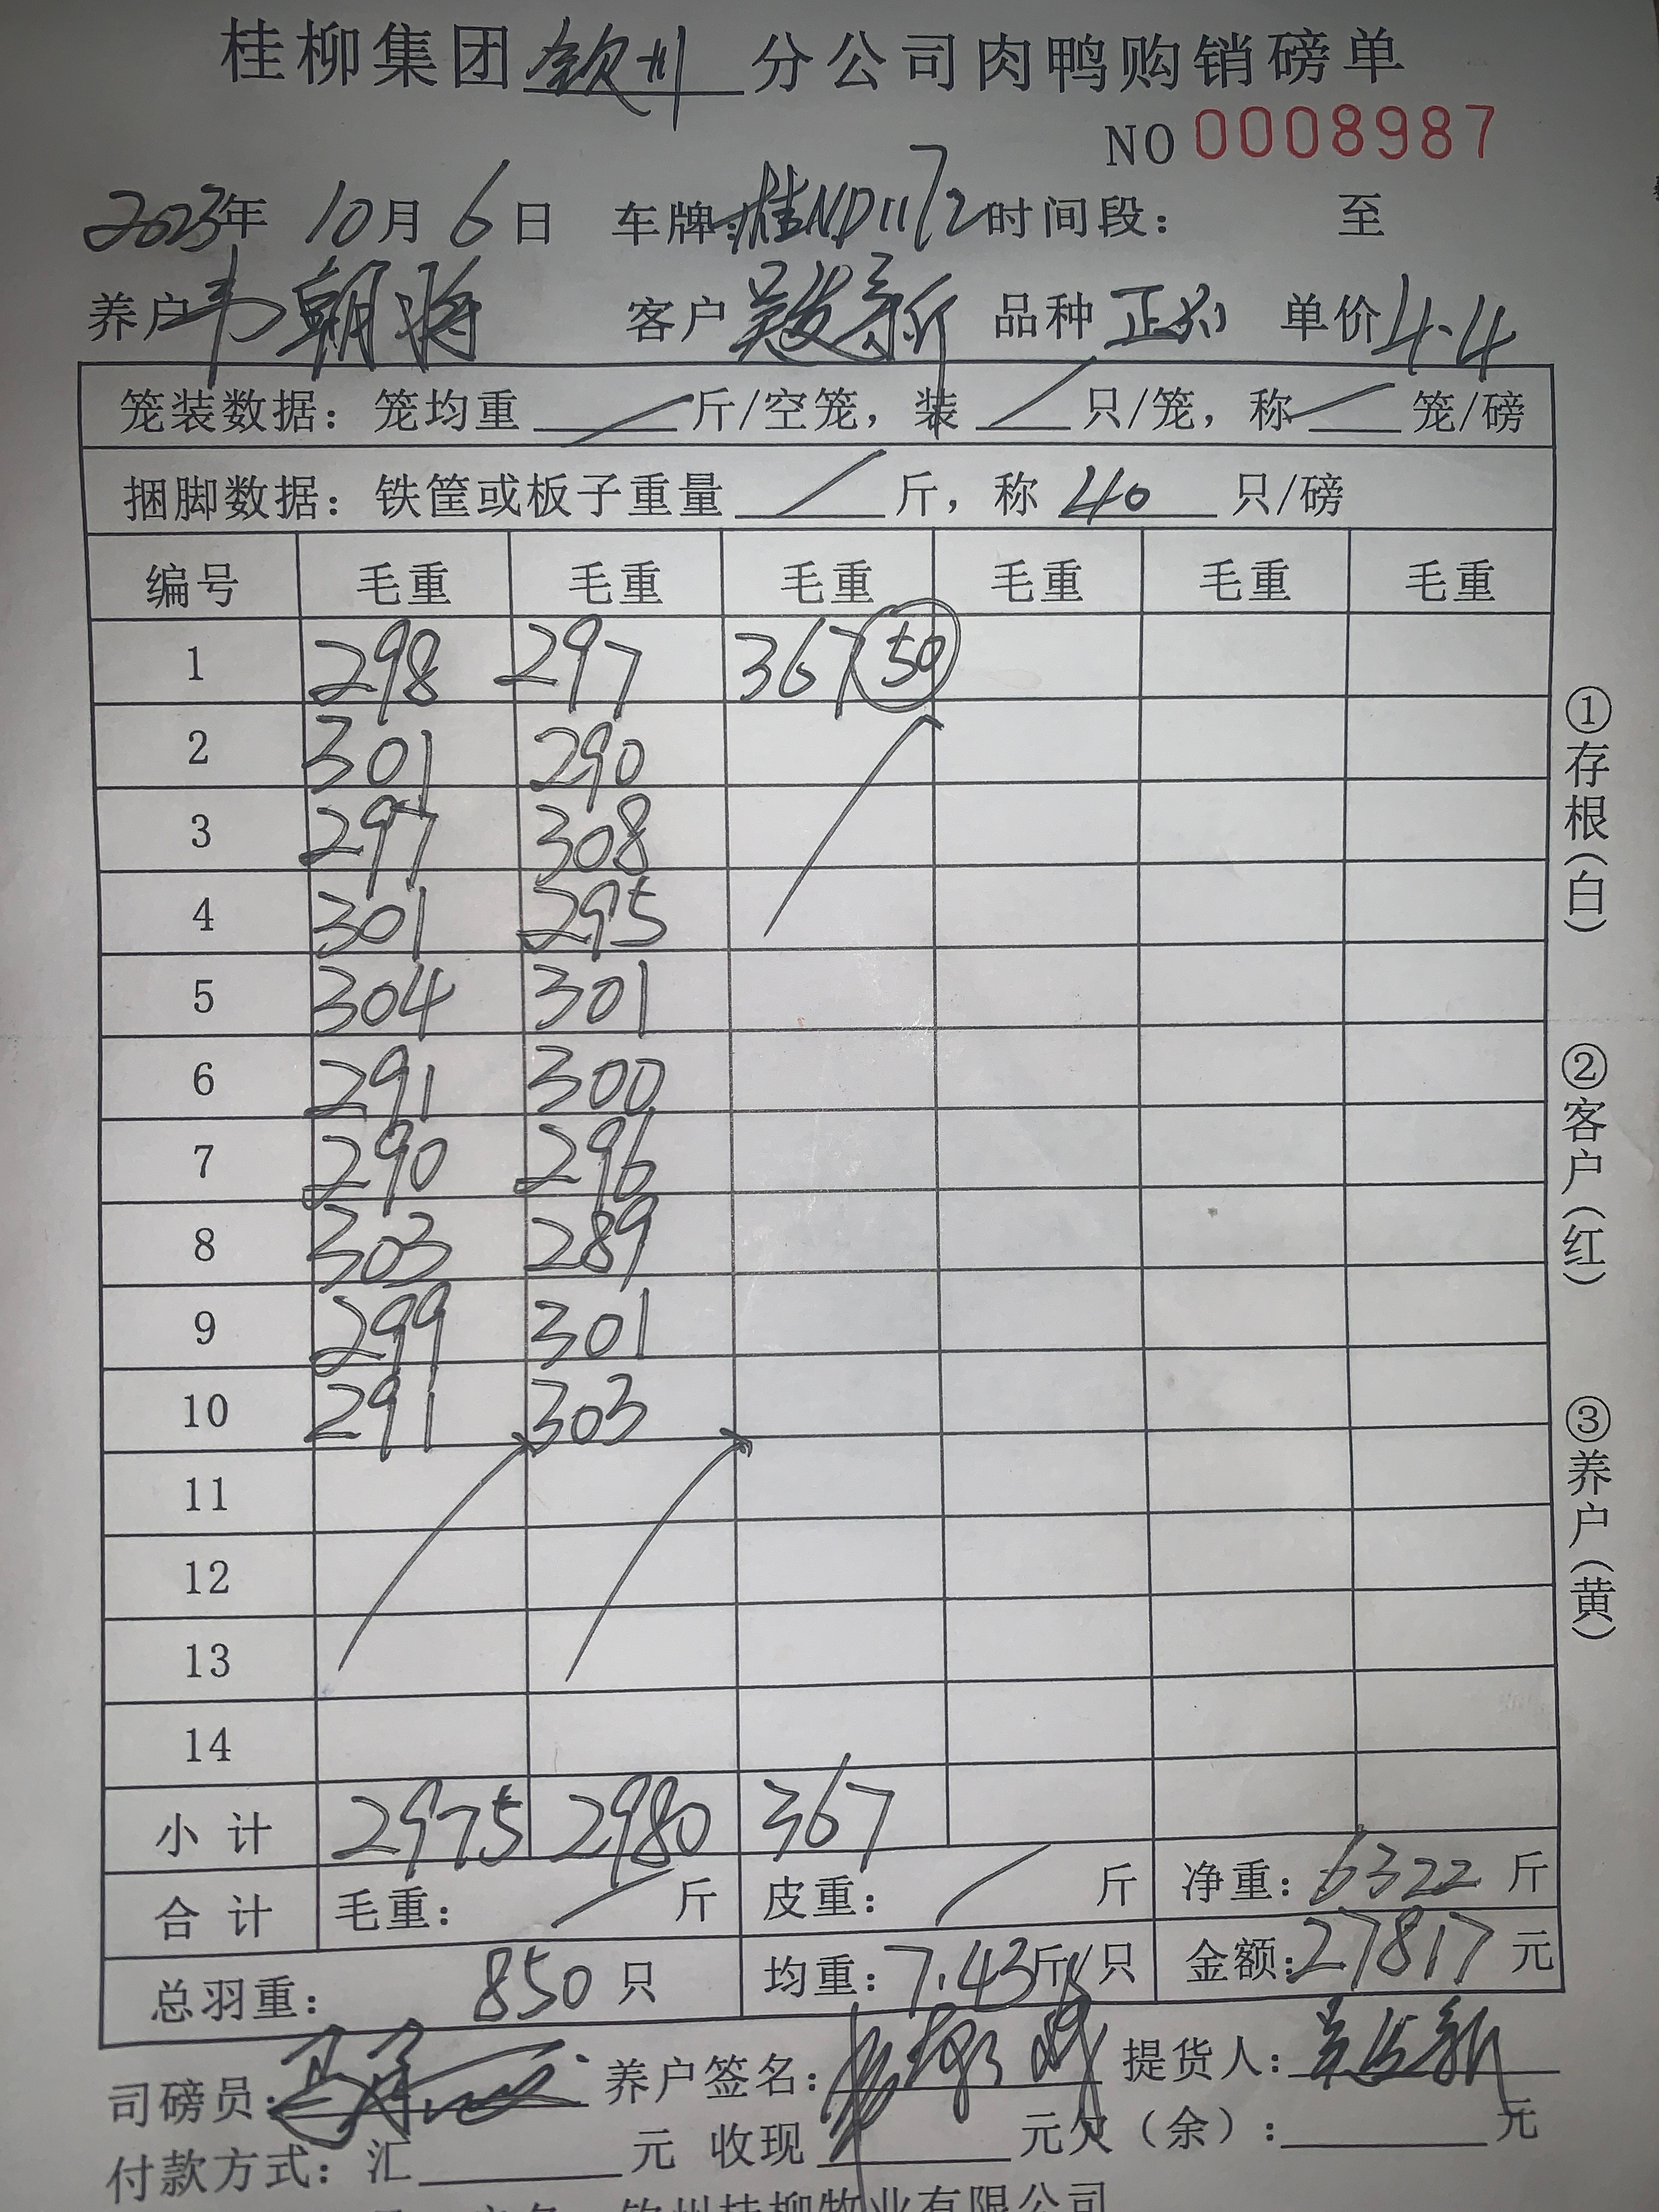 桂柳集团 钦州 分公司肉鸭购销磅单
NO 0008987
2023年 10月 6日 车牌:桂ND1172 时间段: 至
养户 韦朝将 客户 吴发新 品种 正 单价 4.4
笼装数据:笼均重 / 斤/空笼,装 / 只/笼,称 / 笼/磅
捆脚数据:铁筐或板子重量 / 斤,称 40 只/磅
编号 毛重 毛重 毛重 毛重 毛重 毛重
1 298 297 367 50
2 301 290
3 297 308
4 301 295
5 304 301
6 291 300
7 290 296
8 303 289
9 299 301
10 291 303
11
12
13
14
小计 2975 2980 367
合计 毛重: / 斤 皮重: / 斤 净重:6322 斤
总羽重: 850 只 均重:7.43斤/只 金额:27817 元
司磅员: 养户签名: 提货人:吴发新
付款方式:汇 元 收现 元欠(余): 元
钦州桂柳牧业有限公司
①存根(白)
②客户(红)
③养户(黄)